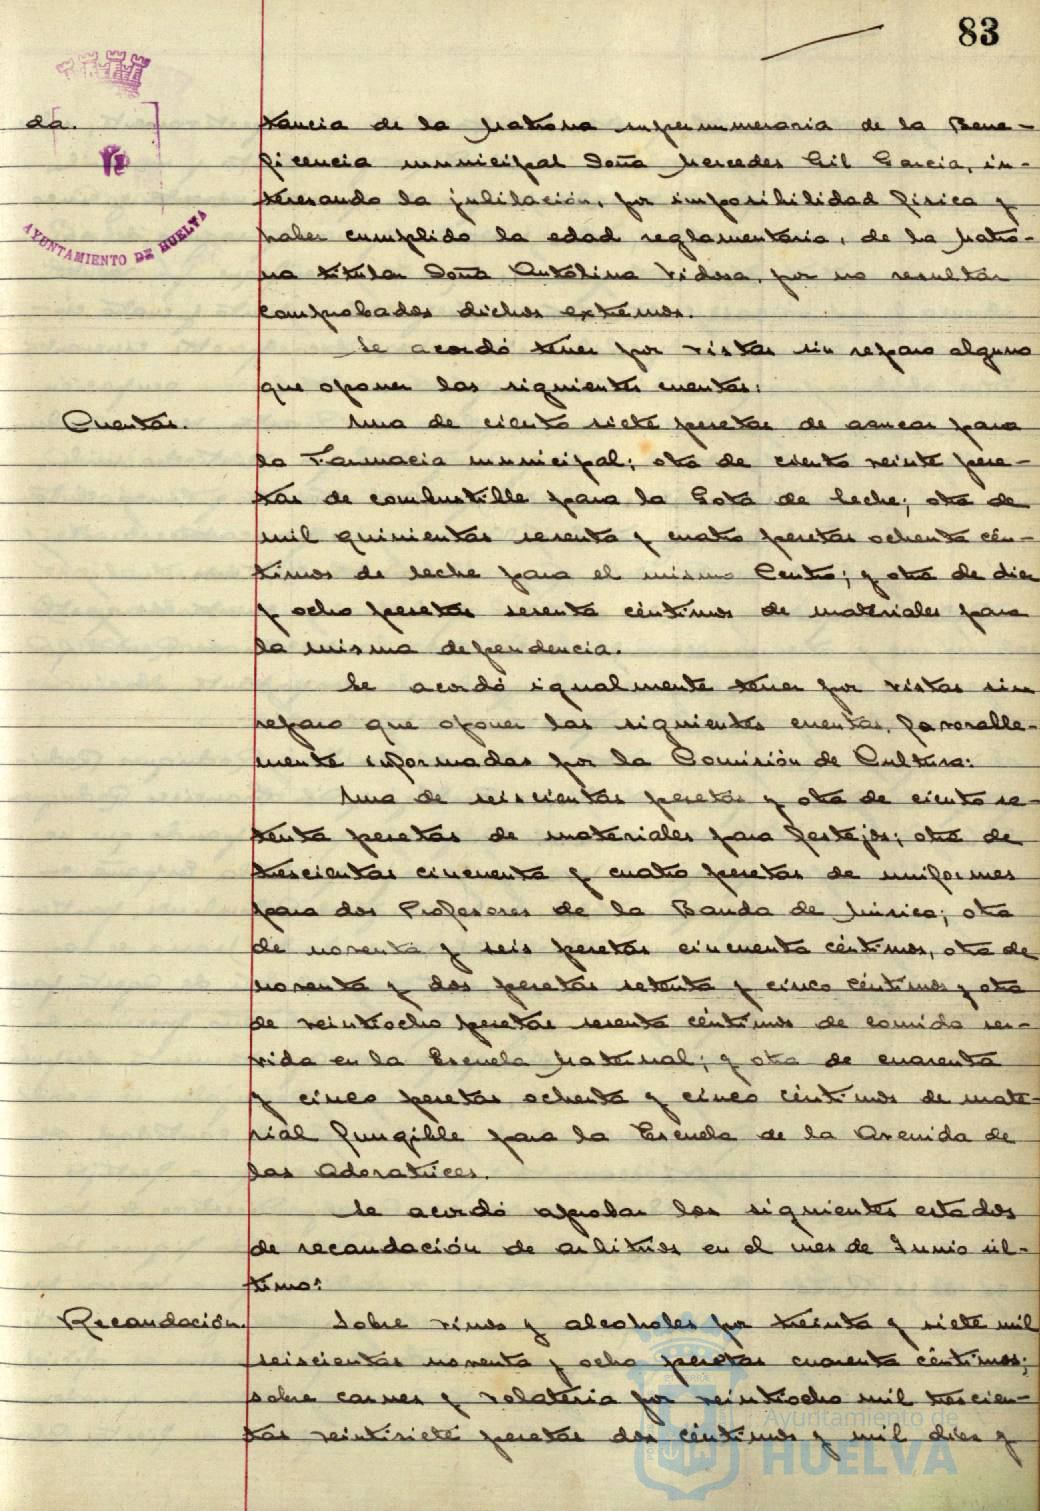 83
da.
AYUNTAMIENTO DE HUELVA
tancia de la Matrona supernumeraria de la Bene-
ficencia municipal Doña Mercedes Gil García, in-
teresando la jubilación, por imposibilidad física y
haber cumplido la edad reglamentaria, de la Matro-
na titular Doña Antolina Vidosa, por no resultar
comprobados dichos extremos.
Se acordó tener por vistas sin reparo alguno
que oponer las siguientes cuentas:
Cuentas.
Una de ciento siete pesetas de azucar para
la Farmacia municipal; otra de ciento veinte pese-
tas de combustible para la Gota de Leche; otra de
mil quinientas sesenta y cuatro pesetas ochenta cén-
timos de leche para el mismo Centro; y otra de diez
y ocho pesetas sesenta céntimos de materiales para
la misma dependencia.
Se acordó igualmente tener por vistas sin
reparo que oponer las siguientes cuentas, favorable-
mente informadas por la Comisión de Cultura:
Una de seiscientas pesetas y otra de ciento se-
tenta pesetas de materiales para festejos; otra de
trescientas cincuenta y cuatro pesetas de uniformes
para dos Profesores de la Banda de Música; otra
de noventa y seis pesetas cincuenta céntimos, otra de
noventa y dos pesetas setenta y cinco céntimos y otra
de veintiocho pesetas sesenta céntimos de comida ser-
vida en la Escuela Maternal; y otra de cuarenta
y cinco pesetas ochenta y cinco céntimos de mate-
rial fungible para la Escuela de la Avenida de
las Adoratrices.
Se acordó aprobar los siguientes estados
de recaudación de arbitrios en el mes de Junio úl-
timo:
Recaudación.
Sobre vinos y alcoholes por treinta y siete mil
seiscientas noventa y ocho pesetas cuarenta céntimos;
sobre carnes y volatería por veintiocho mil trescien-
tas veintisiete pesetas dos céntimos y mil diez y
Ayuntamiento de
HUELVA